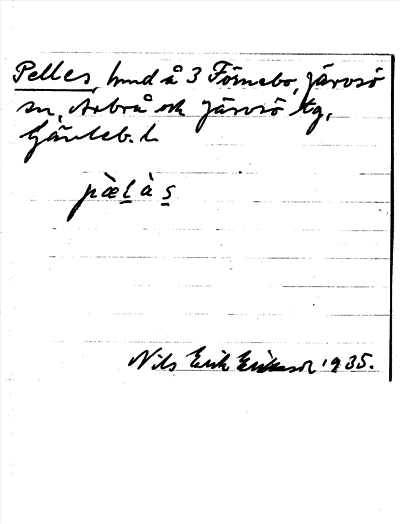 Pelles, hmd å 3 Förnebo, Järvsö
sn, Arbrå och Järvsö tg,
Gävleb. l.
pæ̀l̠às̠
Nils Erik Eriksson 1935.